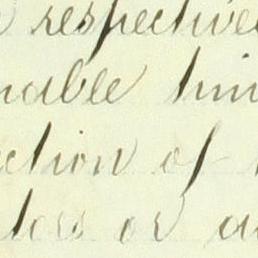 respective
nable tim
ction of
tors or a